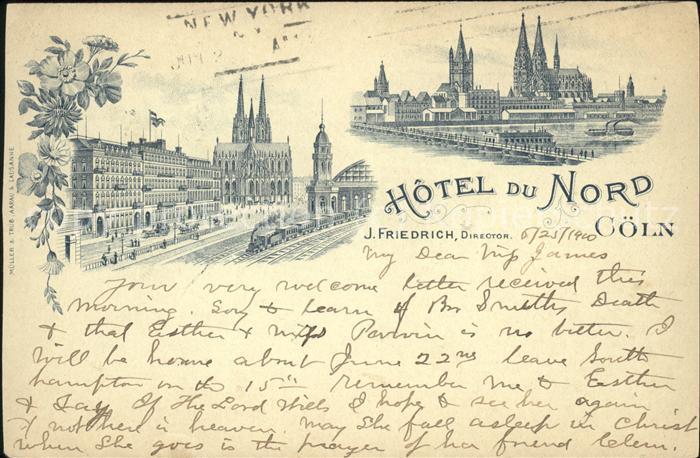 NEW YORK
HÔTEL DU NORD
CÖLN
J. FRIEDRICH, DIRECTOR.
MÜLLER & TRÜB, AARAU & LAUSANNE
5/25/1900
My Dear Miss James
Your very welcome letter received this
morning. Sory to learn of Bro Smiths Death
& that Esther & Miss Parvin is no better. I
will be home about June 22nd leave South
hampton on the 15th remember me to Esther
& Say If The Lord Wills I hope to see her again
if not here in heaven. May She fall asleep in Christ
when She goes is the prayer of her friend Clem.